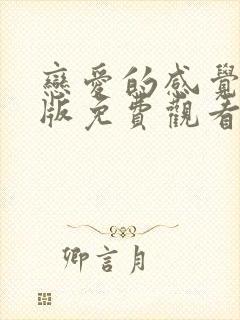 戀愛的感覺
版免費觀看
卿言月